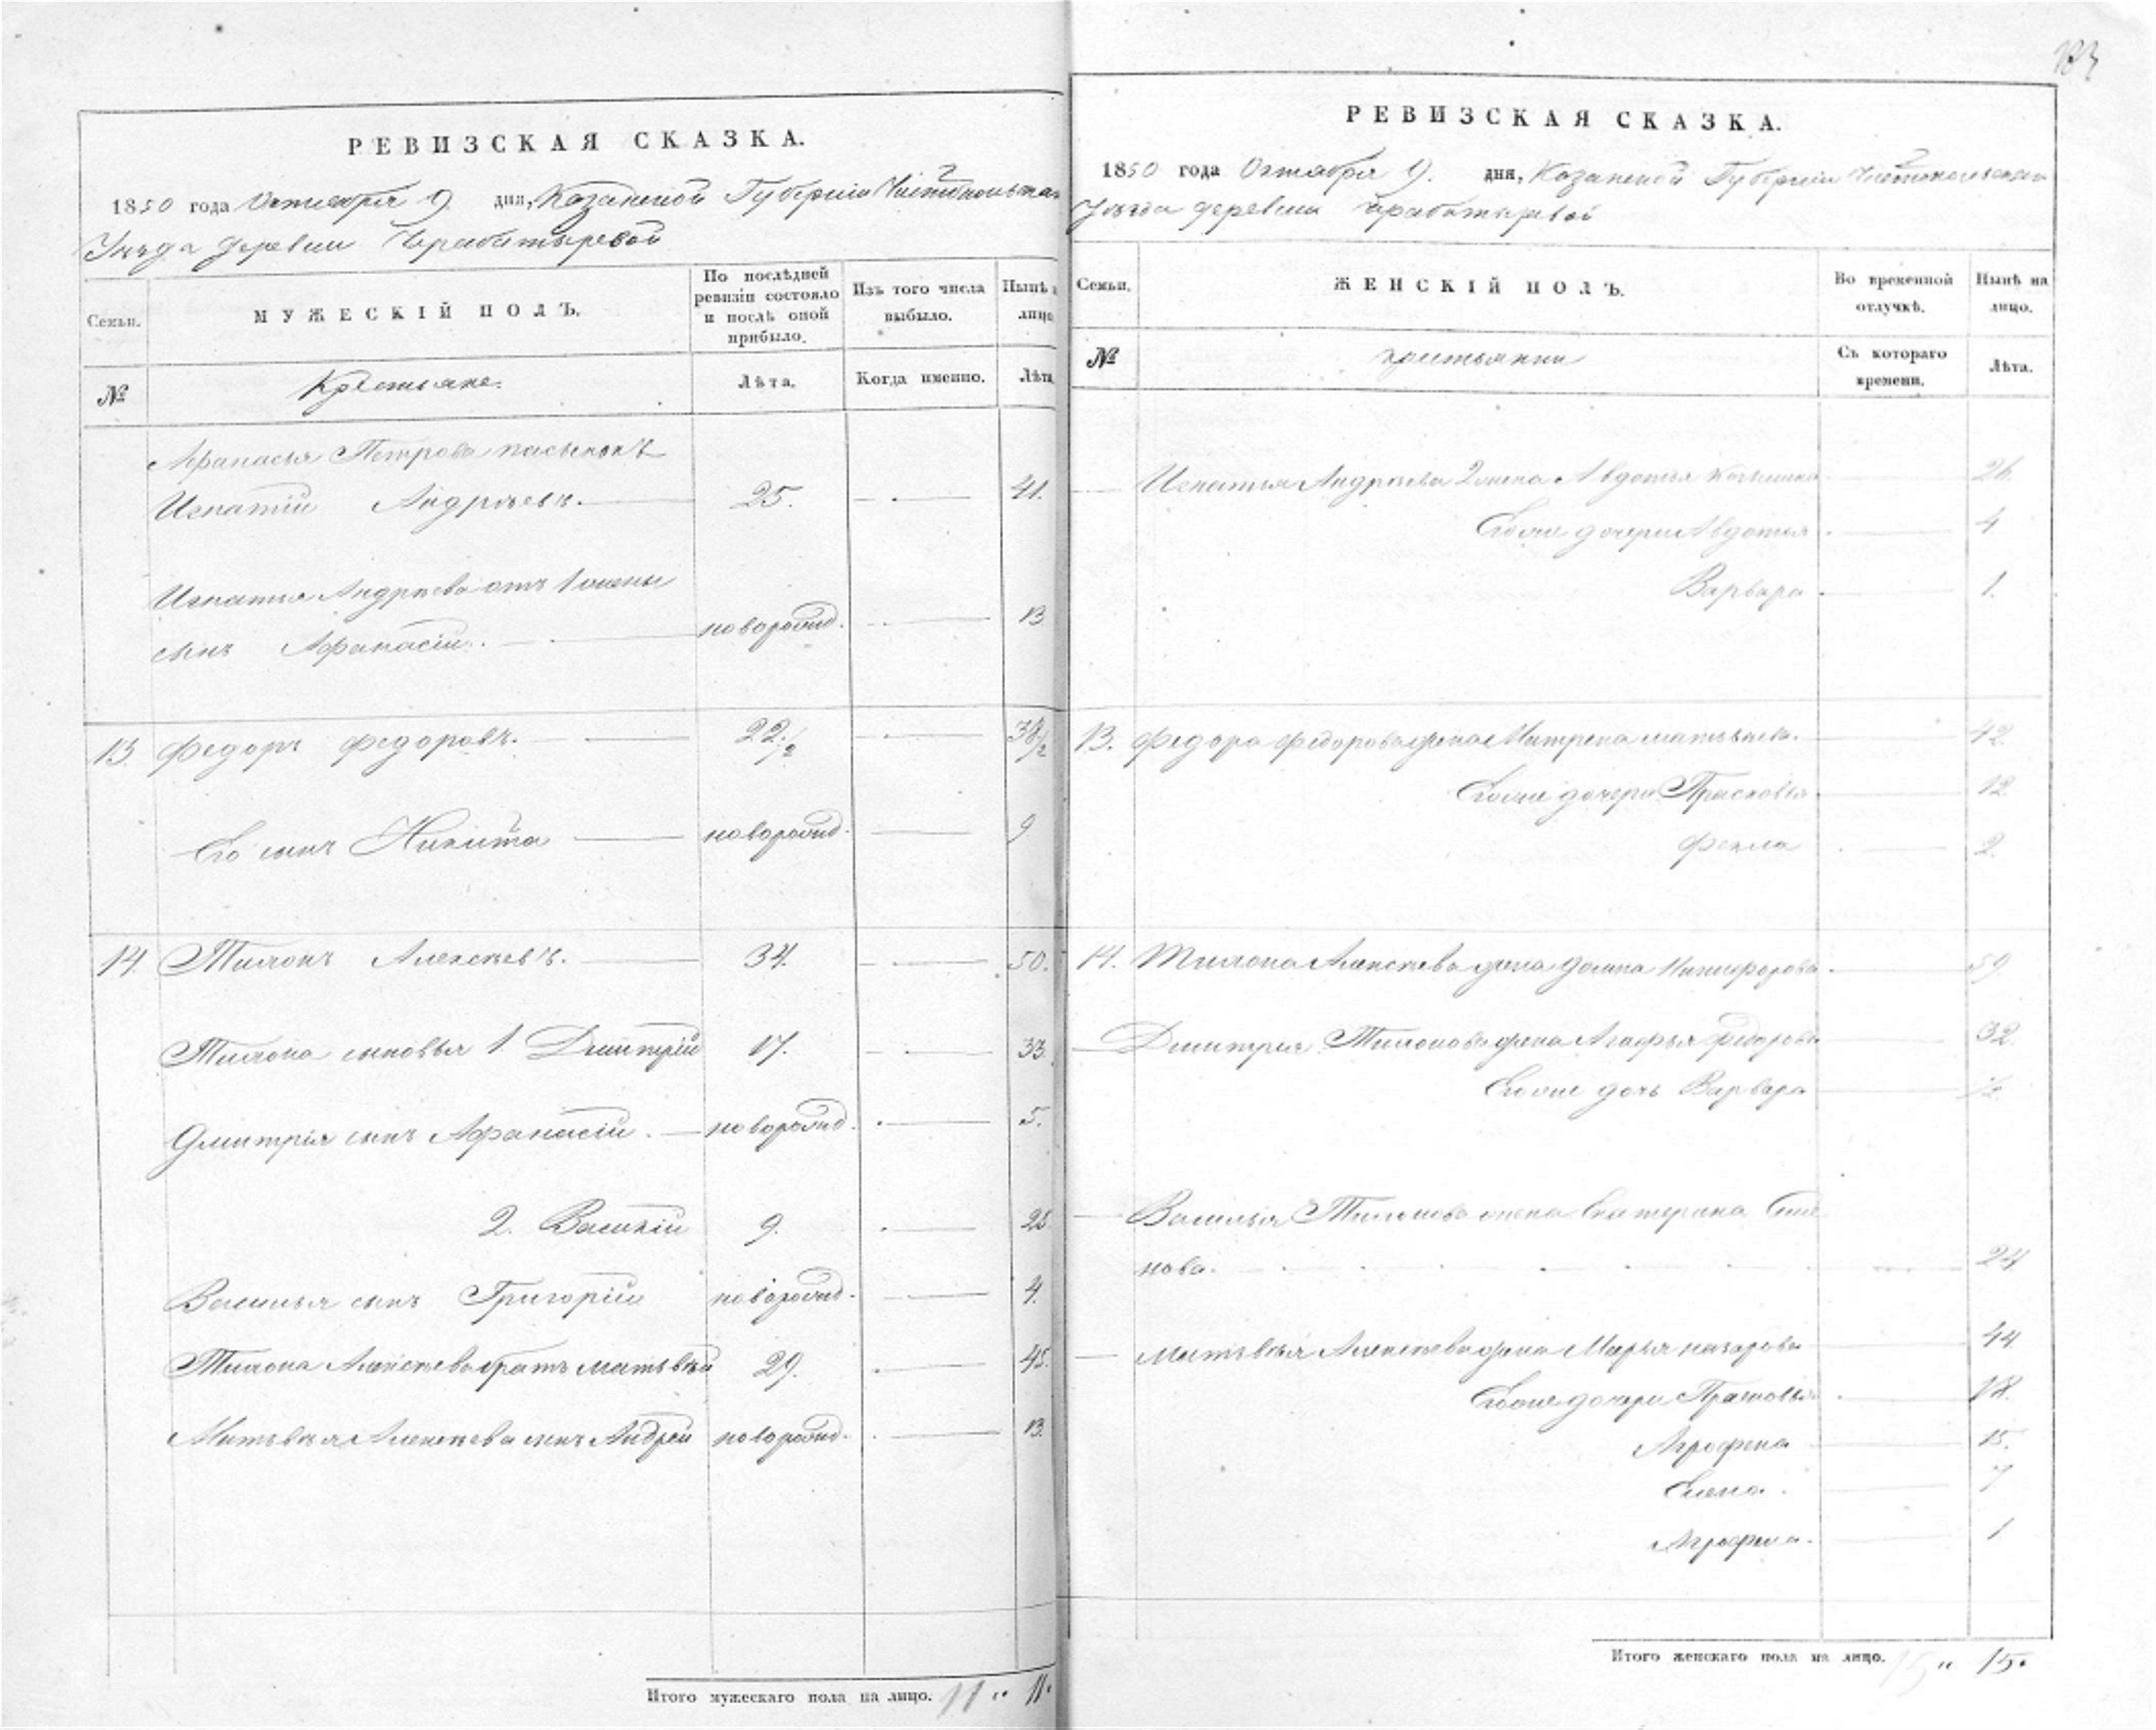 183
РЕВИЗСКАЯ СКАЗКА.
1850 года Октября 9 дня, Казанской Губернии Чистопольскаго
Уезда деревни
Семьи.
МУЖЕСКІЙ ПОЛЪ.
По послѣдней ревизіи состояло и послѣ оной прибыло.
Изъ того числа выбыло.
Нынѣ на лицо
№
Крестьяне.
Лѣта.
Когда именно.
Лѣта
Афанасья Петрова пасынокъ
Игнатій Андреевъ. 25. 41.
Игнатья Андреева отъ 1 жены
сынъ Афанасій. новорожд. 13
13. Федоръ Федоровъ. 22 1/2 38 1/2
Его сынъ Никита новорожд. 9
14. Тимонъ Алексѣевъ. 34. 50.
Тимона сыновья 1. Дмитрій 17. 33.
Дмитрія сынъ Афанасій. новорожд. 5.
2. Василій 9. 25
Василья сынъ Григорій новорожд. 4.
Тимона Алексѣева братъ Матвѣй 29. 45.
Матвѣя Алексѣева сынъ Андрей новорожд. 13.
Итого мужескаго пола на лицо. 11 „ 11.
РЕВИЗСКАЯ СКАЗКА.
1850 года Октября 9. дня, Казанской Губерніи Чистопольскаго
Уезда деревни
Семьи.
ЖЕНСКІЙ ПОЛЪ.
Во временной отлучкѣ.
Нынѣ на лицо.
№
крестьянки
Съ котораго времени.
Лѣта.
Игнатья Андреева 2 жена Авдотья 26.
Его же дочери Авдотья 4
Варвара 1.
13. Федора Федорова жена Матрена Матвѣева. 42
Его же дочери Прасковья 12
Фекла 2.
14. Тимона Алексѣева жена Домна Никифорова 59
Дмитрія Тимонова жена Агафья Федорова 32.
Его же дочь Варвара 1/2
Василья Тимонова жена Екатерина
нова. 24
Матвѣя Алексѣева жена Марья Назарова 44
Его же дочери Прасковья 18.
Агрофена 15.
Елена. 7
Агрофена. 1
Итого женскаго пола на лицо. 15 „ 15.